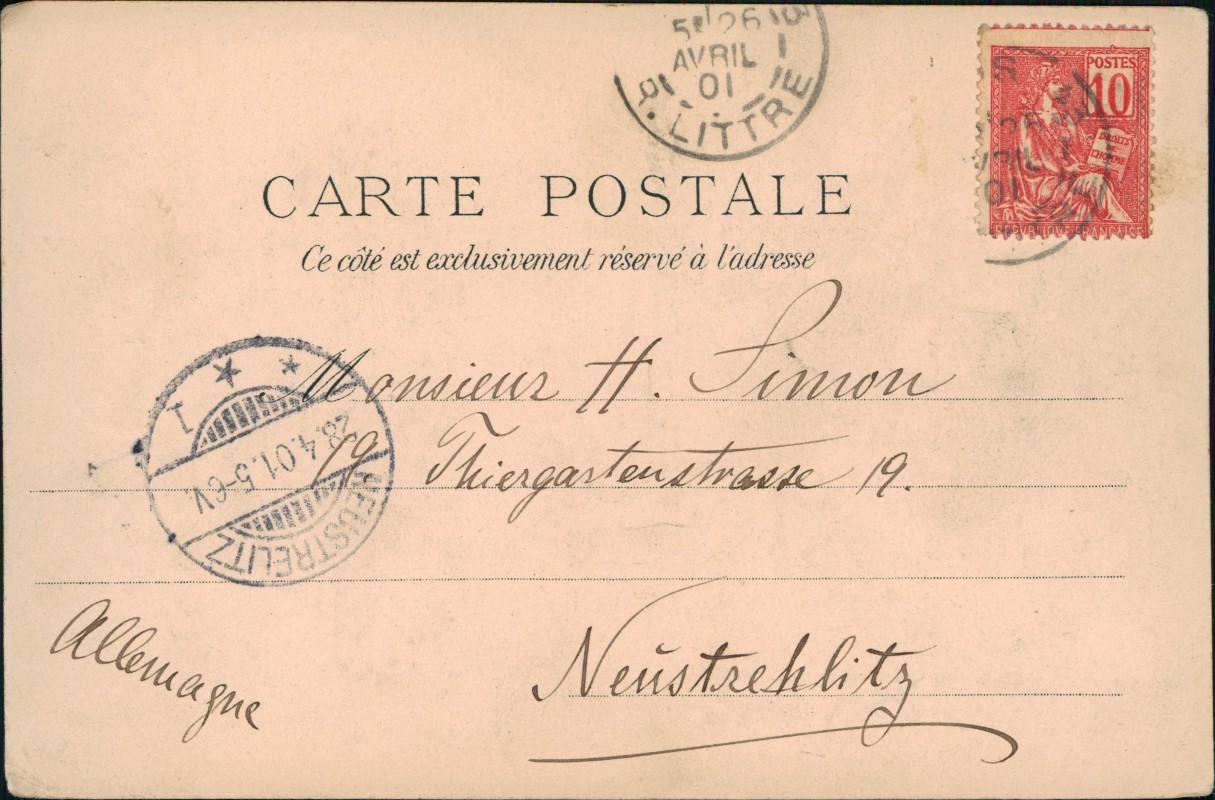 5E 26
AVRIL
01
R. LITTRE
POSTES
10
DROITS
DE
L'HOMME
REPUBLIQUE FRANÇAISE
CARTE POSTALE
Ce côté est exclusivement réservé à l'adresse
Monsieur H. Simon
19 Thiergartenstrasse 19.
Neŭstrehlitz
Allemagne
1
28.4.01.5-6V.
NEUSTRELITZ